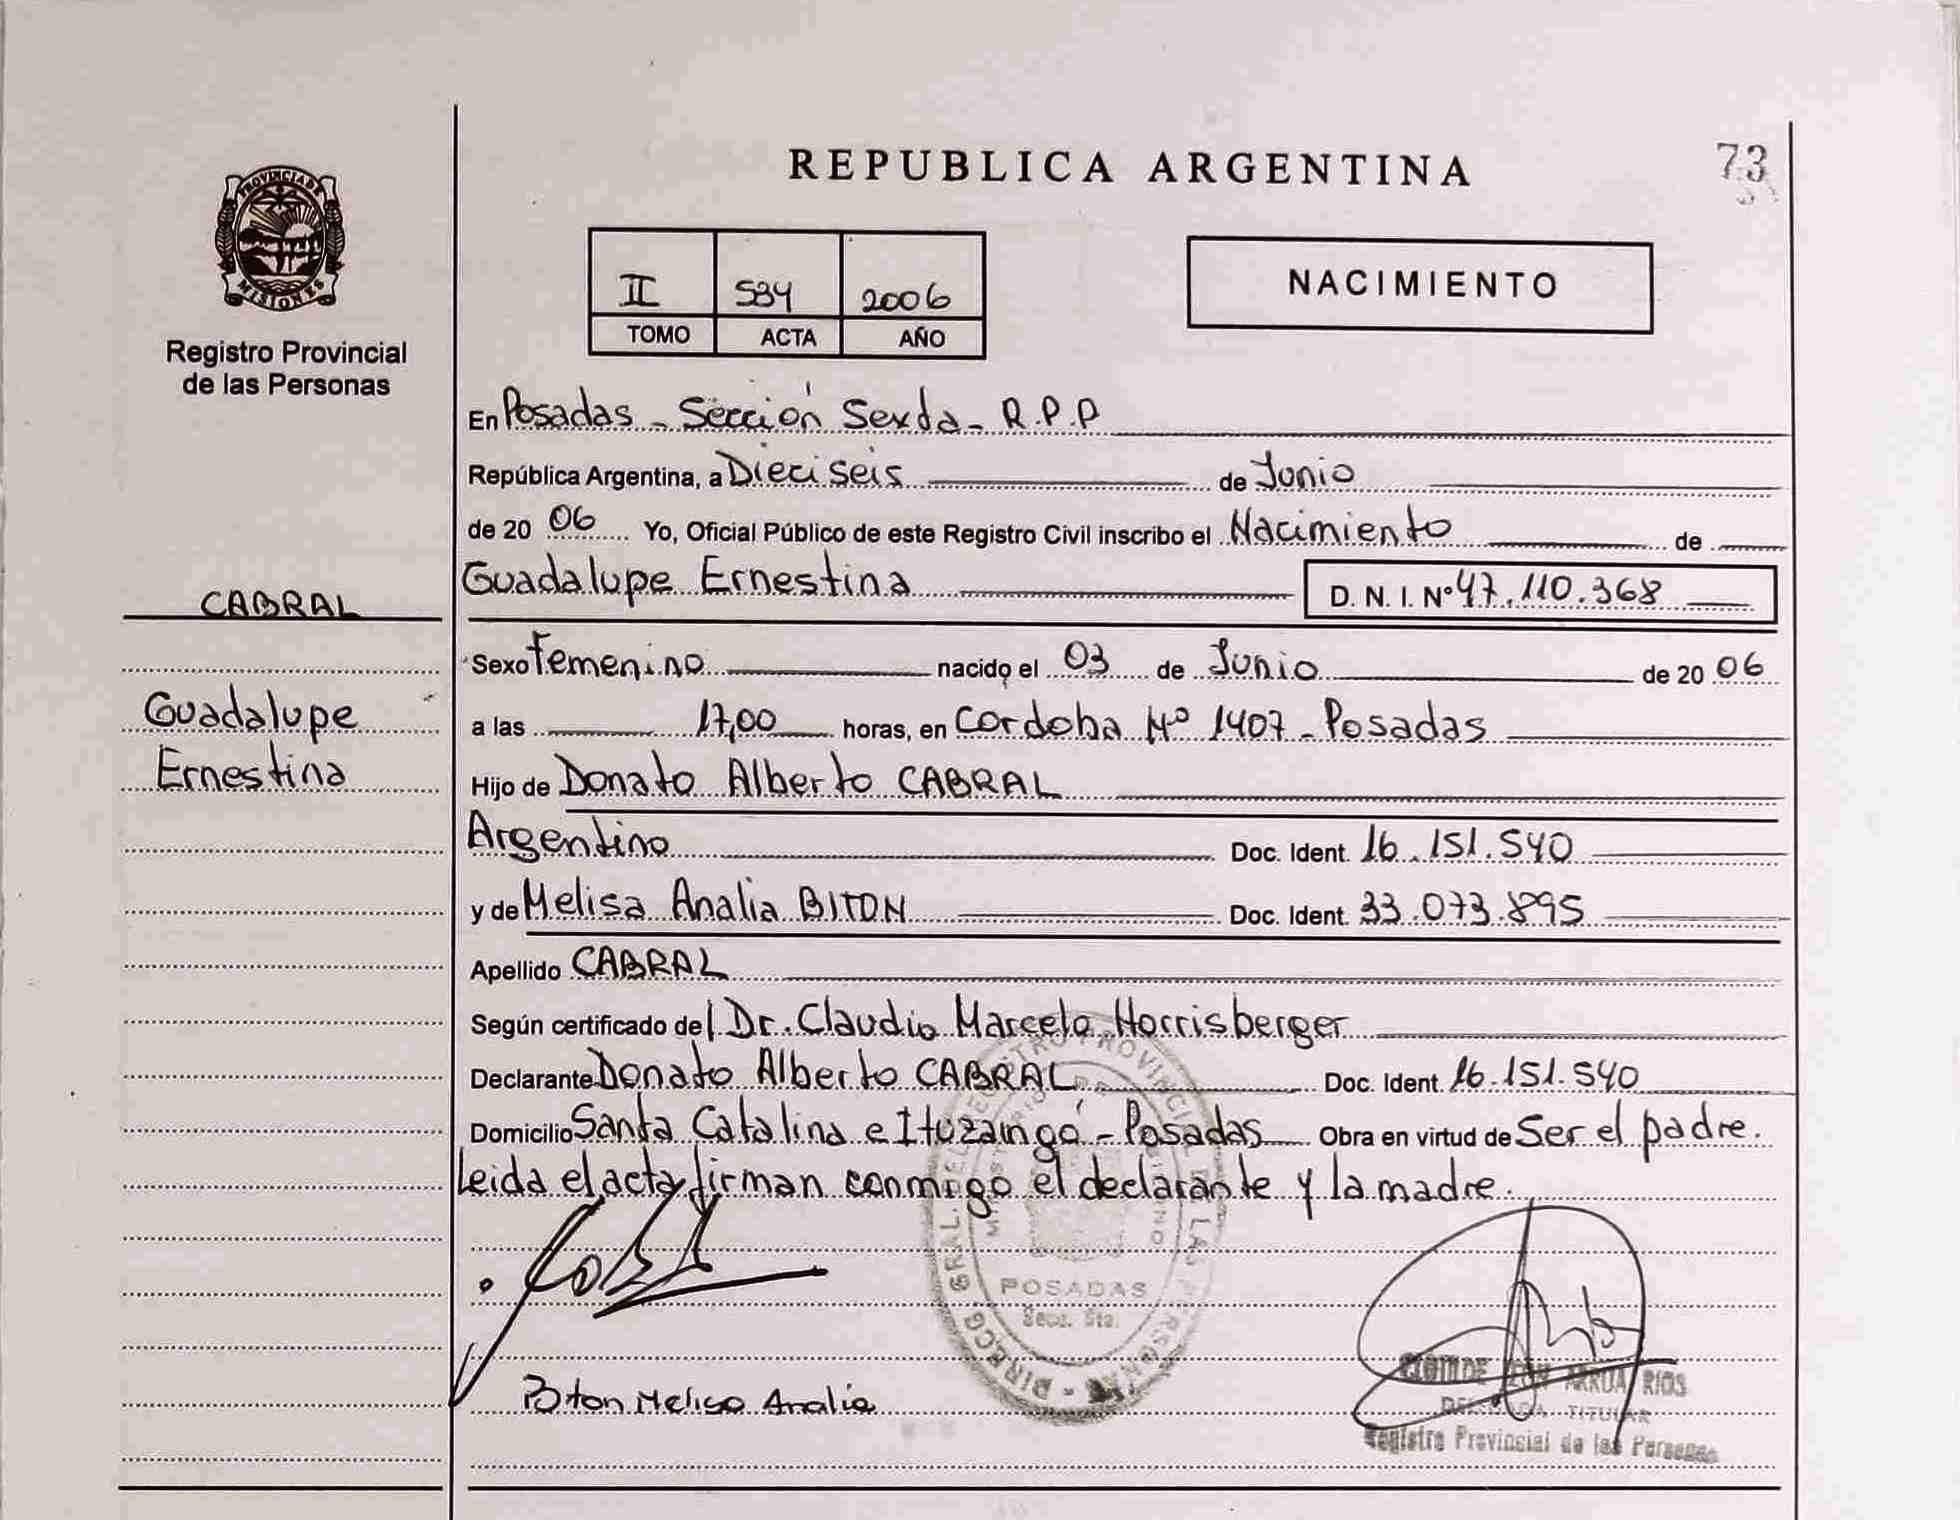 REPUBLICA ARGENTINA
73
PROVINCIA DE
MISIONES
Registro Provincial
de las Personas
II 594 2006
TOMO ACTA AÑO
NACIMIENTO
En Posadas - Sección Sexta - R.P.P
República Argentina, a Dieciseis de Junio
de 20 06 Yo, Oficial Público de este Registro Civil inscribo el Nacimiento de
CABRAL
Guadalupe Ernestina D. N. I. Nº 47.110.368
Sexo Femenino nacido el 03 de Junio de 20 06
Guadalupe
Ernestina
a las 17,00 horas, en Cordoba Nº 1407 - Posadas
Hijo de Donato Alberto CABRAL
Argentino Doc. Ident. 16.151.540
y de Melisa Analia BITON Doc. Ident. 33.073.895
Apellido CABRAL
Según certificado del Dr. Claudio Marcelo Horrisberger
Declarante Donato Alberto CABRAL Doc. Ident. 16.151.540
Domicilio Santa Catalina e Ituzaingó - Posadas Obra en virtud de Ser el padre.
Leida el acta firman conmigo el declarante y la madre.
POSADAS
Secc. 6ta.
Biton Melisa Analia
ARRUA RIOS
TITULAR
Registro Provincial de las Personas